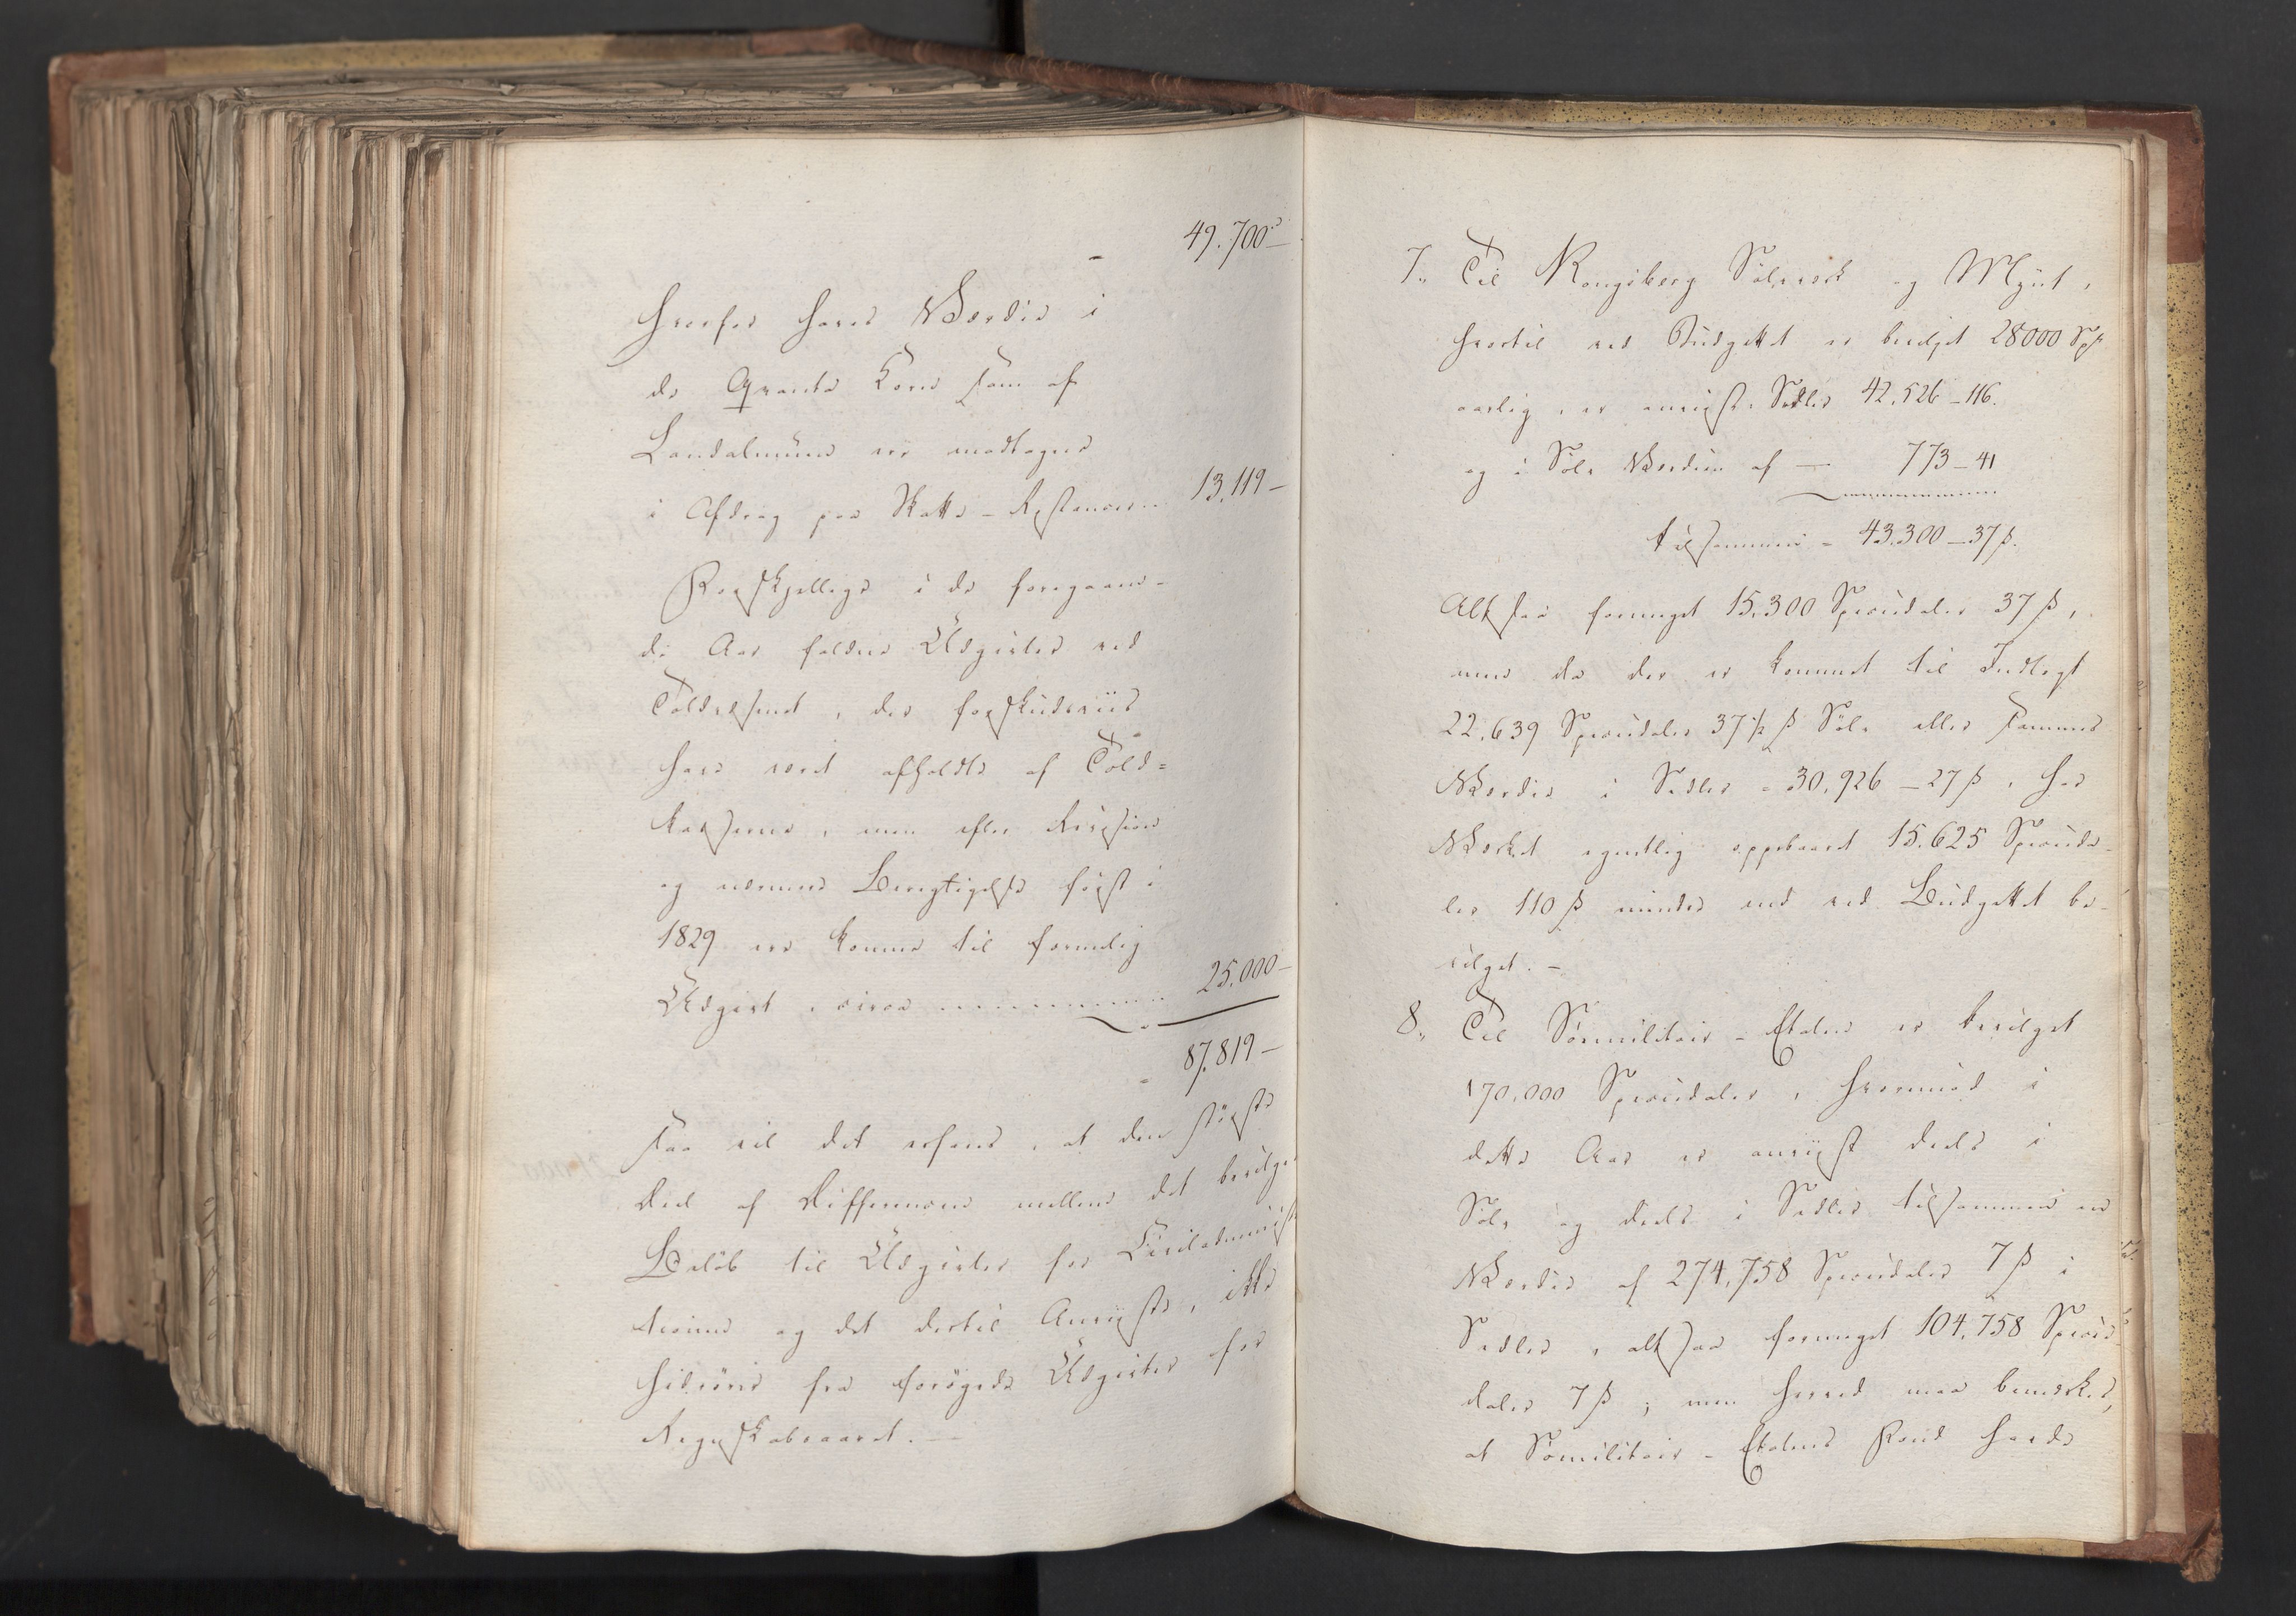 49.700 –
hvorfor haves Værdie i
de Qvanta Korn som af
Landalmuen ere modtagne
i Afdrag paa Skatte-Restancer 13.119 –
Forskjellige i de foregaaen-
de Aar faldne Udgivter ved
Toldvæsenet, der forskudsviis
have været afholdte af Told-
kasserne, men efter Revision
og nærmere Berigtigelse først i
1829 ere komne til formelig
Udgivt, circa 25.000 –
87.819 –
saa vil det erfares, at den største
Deel af Differencen mellem det bevilge
Beløb til Udgivter for Civiladminist
rationen og det dertil Anviiste, ikke
hidrører fra forøgede Udgivter for
Regnskabsaaret. –
7., Til Kongsberg Sølvverk og Mynt,
hvortil ved Budgettet er bevilget 28000 Spd
aarlig, er anviist i Sedler 42.526 – 116.
og i Sølv Værdien af – 773 – 41
tilsammen – 43.300 – 37 ß.
Altsaa formeget 15.300 Speciedaler 37 ß,
men da der er kommet til Indtægt
22.639 Speciedaler 37 1/2 ß Sølv eller sammes
Værdie i Sedler = 30.926 – 27 ß, har
Værket egentlig oppebaaret 15.625 Specieda-
ler 110 ß mindre end ved Budgettet be-
vilget. –
8., Til Sømilitair-Etaten er bevilget
170.000 Speciedaler, hvorimod i
dette Aar er anviist deels i
Sølv og deels i Sedler tilsammen en
Værdie af 274.758 Speciedaler 7 ß i
Sedler, altsaa formeget 104.758 Specie-
daler 7 ß; men herved maa bemærkes,
at Sømilitair-Etatens Fond havde